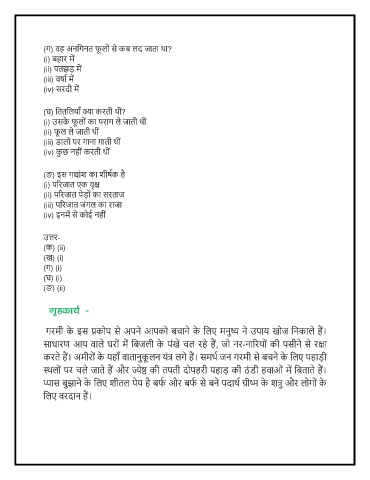 (ग) वह अनगिनत फूलों से कब लद जाता था?
(i) बहार में
(ii) पतझड़ में
(iii) वर्षा में
(iv) सरदी में
(घ) तितलियाँ क्या करती थीं?
(i) उसके फूलों का पराग ले जाती थीं
(ii) फूल ले जाती थीं
(iii) डालों पर गाना गाती थीं
(iv) कुछ नहीं करती थीं
(ङ) इस गद्यांश का शीर्षक है
(i) परिजात एक वृक्ष
(ii) परिजात पेड़ों का सरताज
(iii) परिजात जंगल का राजा
(iv) इनमें से कोई नहीं
उत्तर-
(क) (ii)
(ख) (i)
(ग) (i)
(घ) (i)
(ङ) (ii)
गृहकार्य -
गरमी के इस प्रकोप से अपने आपको बचाने के लिए मनुष्य ने उपाय खोज निकाले हैं।
साधारण आय वाले घरों में बिजली के पंखे चल रहे हैं, जो नर-नारियों की पसीने से रक्षा
करते हैं। अमीरों के यहाँ वातानुकूलन यंत्र लगे हैं। समर्थ जन गरमी से बचने के लिए पहाड़ी
स्थलों पर चले जाते हैं और ज्येष्ठ की तपती दोपहरी पहाड़ की ठंडी हवाओं में बिताते हैं।
प्यास बुझाने के लिए शीतल पेय है बर्फ और बर्फ से बने पदार्थ ग्रीष्म के शत्रु और लोगों के
लिए वरदान हैं।